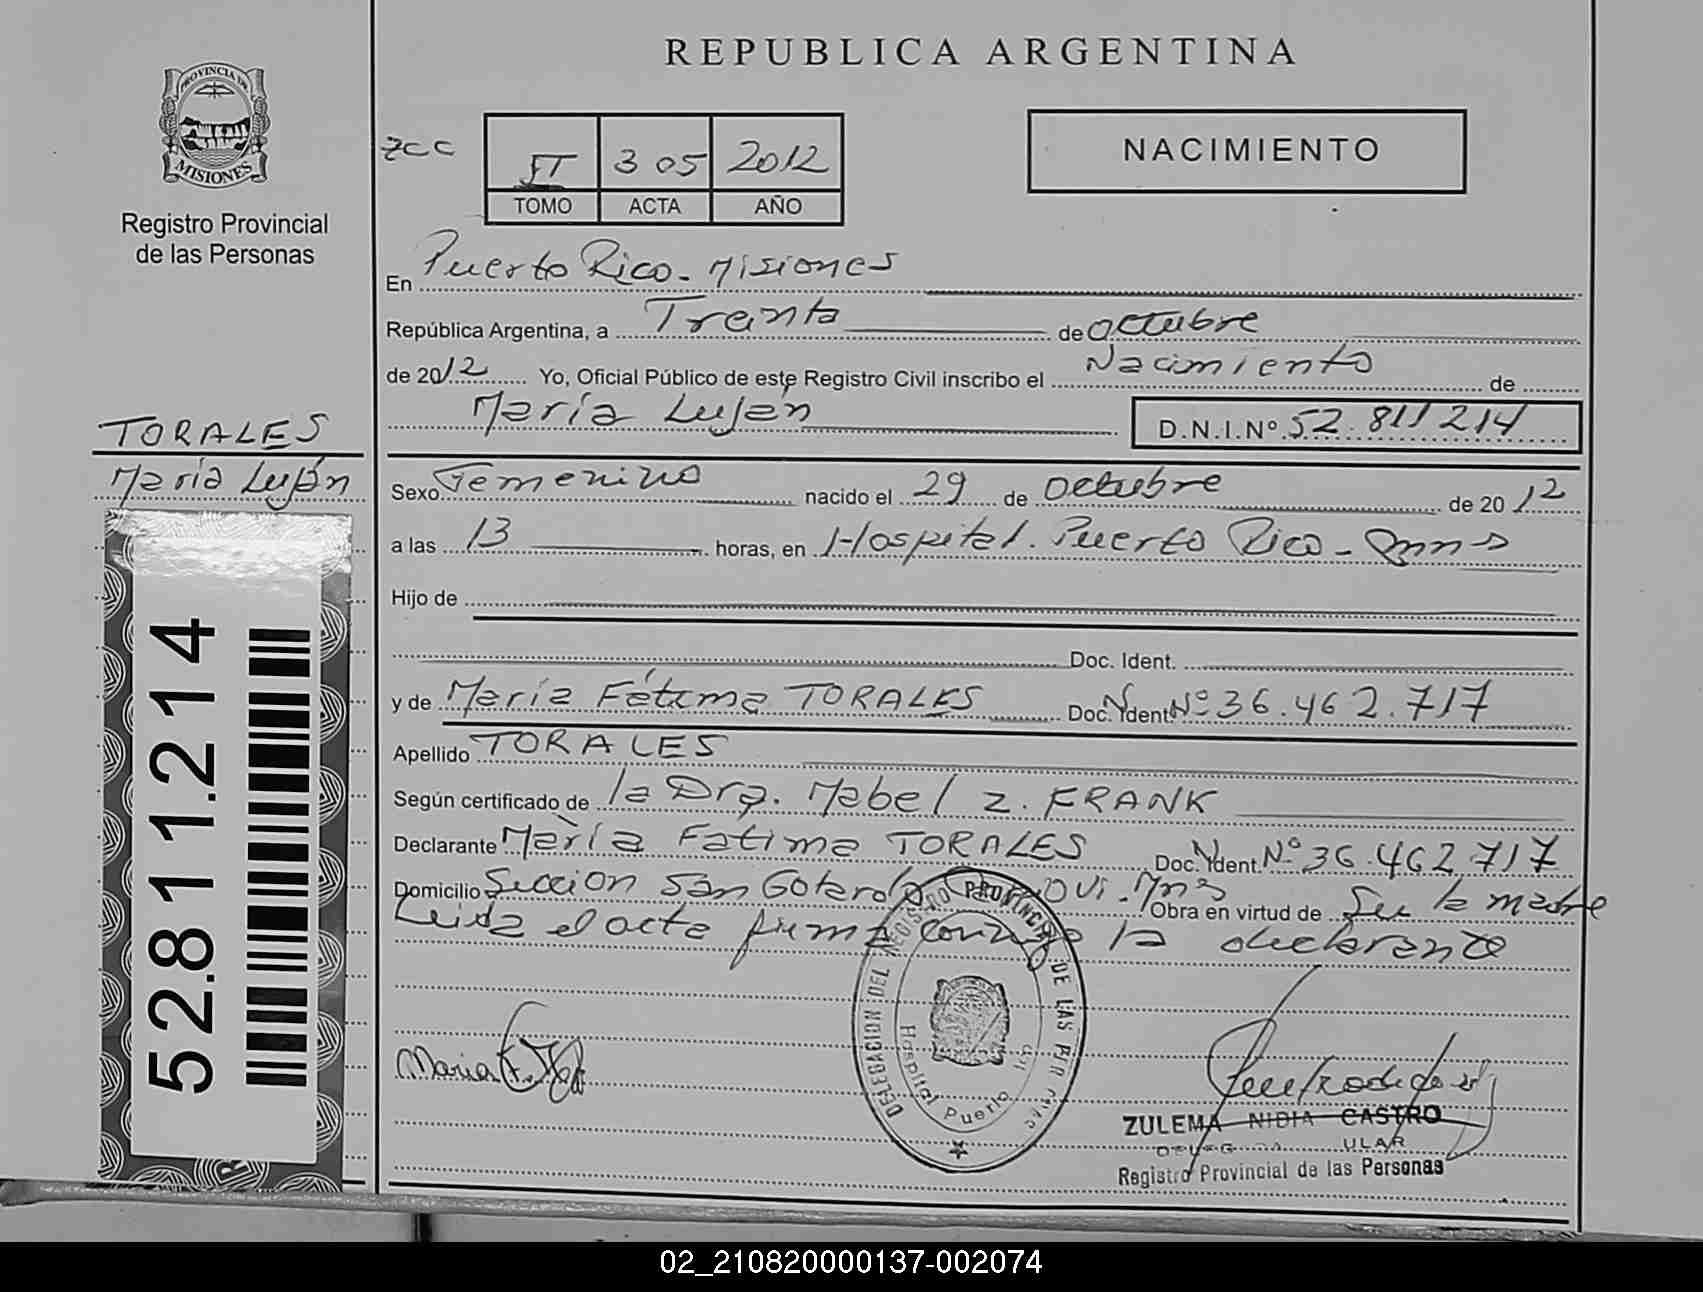 REPUBLICA ARGENTINA
PROVINCIA DE
MISIONES
Registro Provincial
de las Personas
ZCC
II 305 2012
TOMO ACTA AÑO
NACIMIENTO
En Puerto Rico - Misiones
República Argentina, a Treinta de octubre
de 2012 Yo, Oficial Público de este Registro Civil inscribo el Nacimiento de
María Luján D.N.I.Nº. 52.811214
TORALES
María Luján
Sexo Femenino nacido el 29 de octubre de 2012
a las 13 horas, en Hospital. Puerto Rico -
Hijo de
Doc. Ident.
y de María Fátima TORALES Doc. Ident. Nº 36.462.717
Apellido TORALES
Según certificado de la Dra. Mabel Z. FRANK
Declarante María Fatima TORALES Doc. Ident. Nº 36.462717
Domicilio Sección San Gotardo Mns Obra en virtud de Ser la madre
Leida el acta firma conmigo la declarante
52.811.214
Maria F.
DELEGACION DEL REGISTRO PROVINCIAL DE LAS PERSONAS
Hospital Puerto
ZULEMA NIDIA CASTRO
Registro Provincial de las Personas
02_210820000137-002074